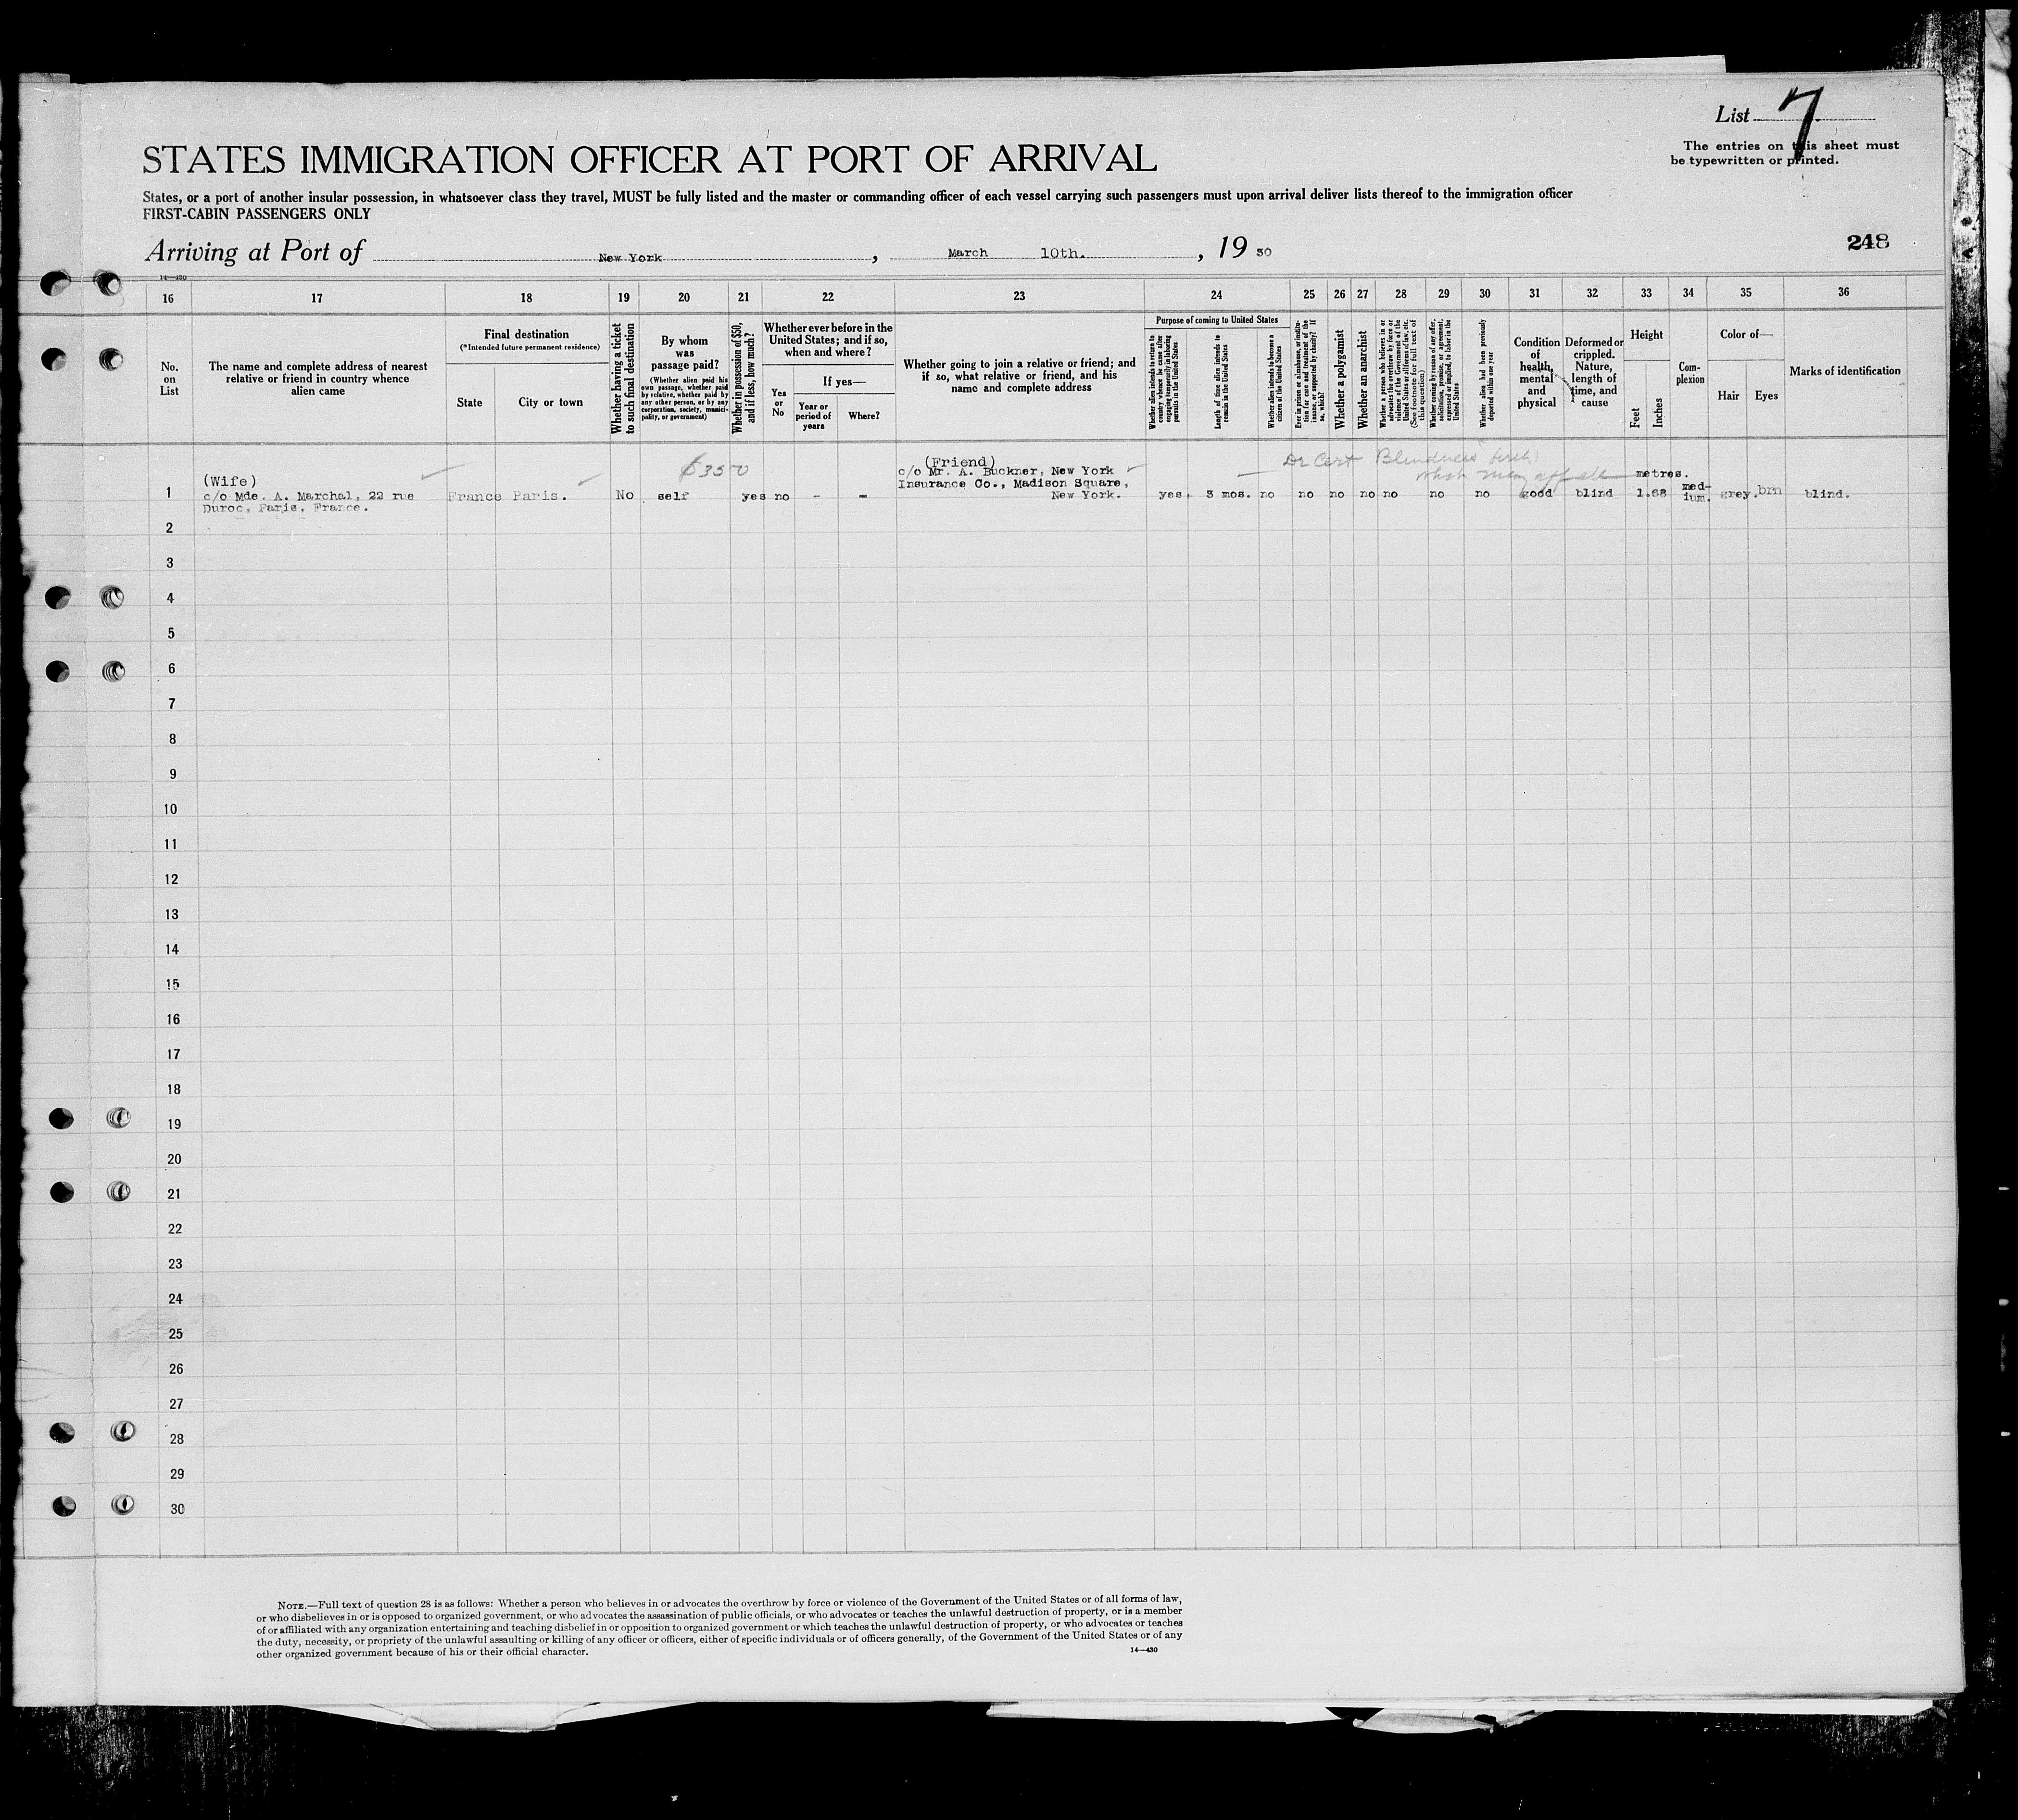 List 7
The entries on this sheet must
be typewritten or printed.
STATES IMMIGRATION OFFICER AT PORT OF ARRIVAL
States, or a port of another insular possession, in whatsoever class they travel, MUST be fully listed and the master or commanding officer of each vessel carrying such passengers must upon arrival deliver lists thereof to the immigration officer
FIRST-CABIN PASSENGERS ONLY
248
Arriving at Port of New York, March 10th., 19 30
14—430
16 17 18 19 20 21 22 23 24 25 26 27 28 29 30 31 32 33 34 35 36
No.
on
List
The name and complete address of nearest
relative or friend in country whence
alien came
Final destination
(*Intended future permanent residence)
State
City or town
Whether having a ticket
to such final destination
By whom
was
passage paid?
(Whether alien paid his
own passage, whether paid
by relative, whether paid by
any other person, or by any
corporation, society, munici-
pality, or government)
Whether in possession of $50,
and if less, how much?
Whether ever before in the
United States; and if so,
when and where?
Yes
or
No
If yes—
Year or
period of
years
Where?
Whether going to join a relative or friend; and
if so, what relative or friend, and his
name and complete address
Purpose of coming to United States
Whether alien intends to return to
country whence he came after
engaging temporarily in laboring
pursuits in the United States
Length of time alien intends to
remain in the United States
Whether alien intends to become a
citizen of the United States
Ever in prison or almshouse, or institu-
tion for care and treatment of the
insane, or supported by charity? If
so, which?
Whether a polygamist
Whether an anarchist
Whether a person who believes in or
advocates the overthrow by force or
violence of the Government of the
United States or all forms of law, etc.
(See footnote for full text of
this question)
Whether coming by reason of any offer,
solicitation, promise, or agreement,
expressed or implied, to labor in the
United States
Whether alien had been previously
deported within one year
Condition
of
health,
mental
and
physical
Deformed or
crippled.
Nature,
length of
time, and
cause
Height
Feet
Inches
Com-
plexion
Color of—
Hair
Eyes
Marks of identification
$350
Dr Cert Blindness
which may aff
1
(Wife)
c/o Mde. A. Marchal, 22 rue
Duroc, Paris. France.
France Paris. No self yes no - -
(Friend)
c/o Mr. A. Buckner, New York
Insurance Co., Madison Square,
New York.
yes. 3 mos. no no no no no no no good blind
metres.
1.68
med-
ium. grey. brn blind.
2
3
4
5
6
7
8
9
10
11
12
13
14
15
16
17
18
19
20
21
22
23
24
25
26
27
28
29
30
NOTE.—Full text of question 28 is as follows: Whether a person who believes in or advocates the overthrow by force or violence of the Government of the United States or of all forms of law,
or who disbelieves in or is opposed to organized government, or who advocates the assassination of public officials, or who advocates or teaches the unlawful destruction of property, or is a member
of or affiliated with any organization entertaining and teaching disbelief in or opposition to organized government or which teaches the unlawful destruction of property, or who advocates or teaches
the duty, necessity, or propriety of the unlawful assaulting or killing of any officer or officers, either of specific individuals or of officers generally, of the Government of the United States or of any
other organized government because of his or their official character.
14—430